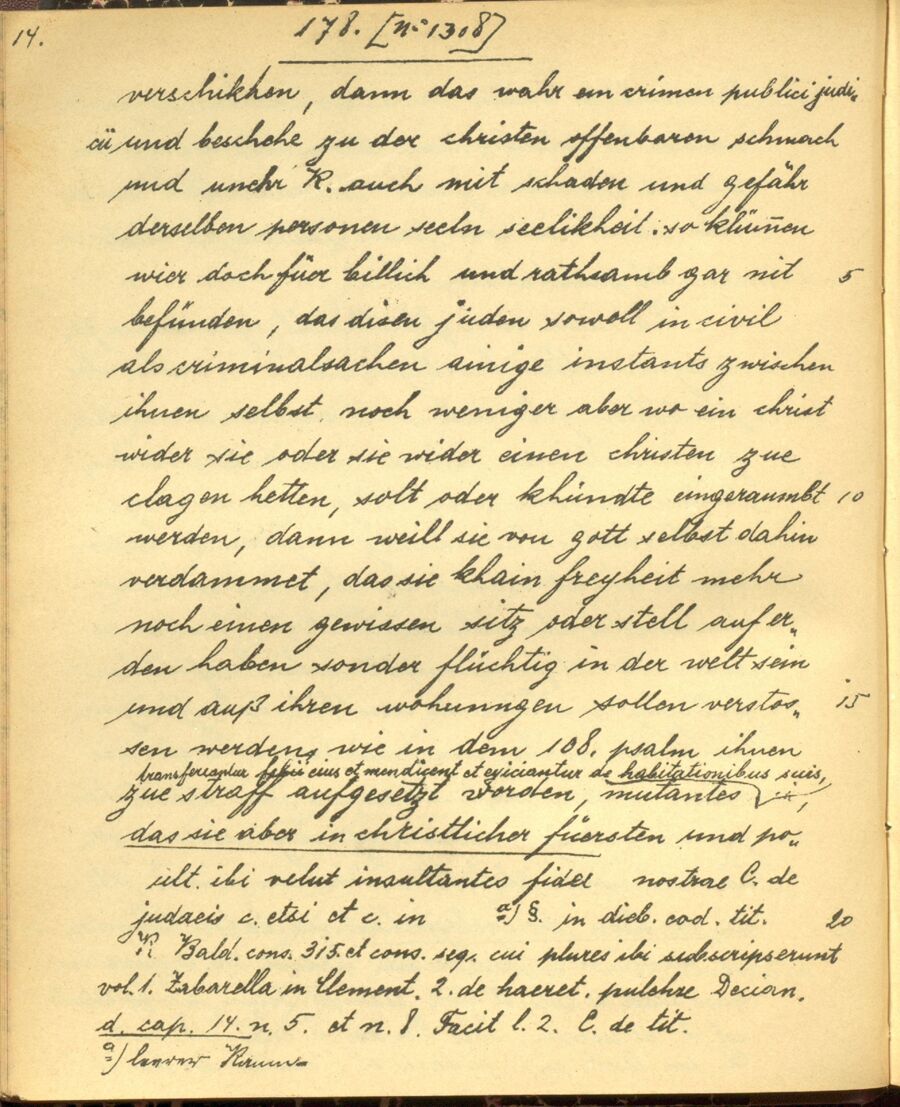 14.
178. [No 1308]
verschikhen, dann das wahr ein crimen publici judi„
cii und beschehe zu der christen offenbaren schmach
und unehr K. auch mit schaden und gefähr
derselben personen seeln seelikheit. so khünnen
wier doch füer billich und rathsamb gar nit 5
befünden, das disen juden sowoll in civil
als criminalsachen ainige instants zwischen
ihnen selbst noch weniger aber wo ein christ
wider sie oder sie wider einen christen zue
clagen hetten, solt oder khündte eingeraumbt 10
werden, dann weill sie von gott selbst dahin
verdammet, das sie khain freyheit mehr
noch einen gewissen sitz oder stell auf er„
den haben sonder flüchtig in der welt sein
und auß ihren wohnungen sollen verstos„ 15
sen werden, wie in dem 108. psalm ihnen
transferantur filii eius et mendicent et eyiciantur de habitationibus suis,
zue straff aufgesetzt worden, mutantes
das sie aber in christlicher füersten und po„
ult. ibi velut insultantes fidei nostrae C. de
judaeis c. etsi et c. in a) §. in dieb. cod. tit. 20
K Bald. cons. 315. et cons. seq. cui plures ibi subscripserunt
vol. 1. Zabarella in Clement. 2. de haeret. pulchre Decian.
d. cap. 14. n. 5. et n. 8. Facit l. 2. C. de tit.
a) leerer Raum